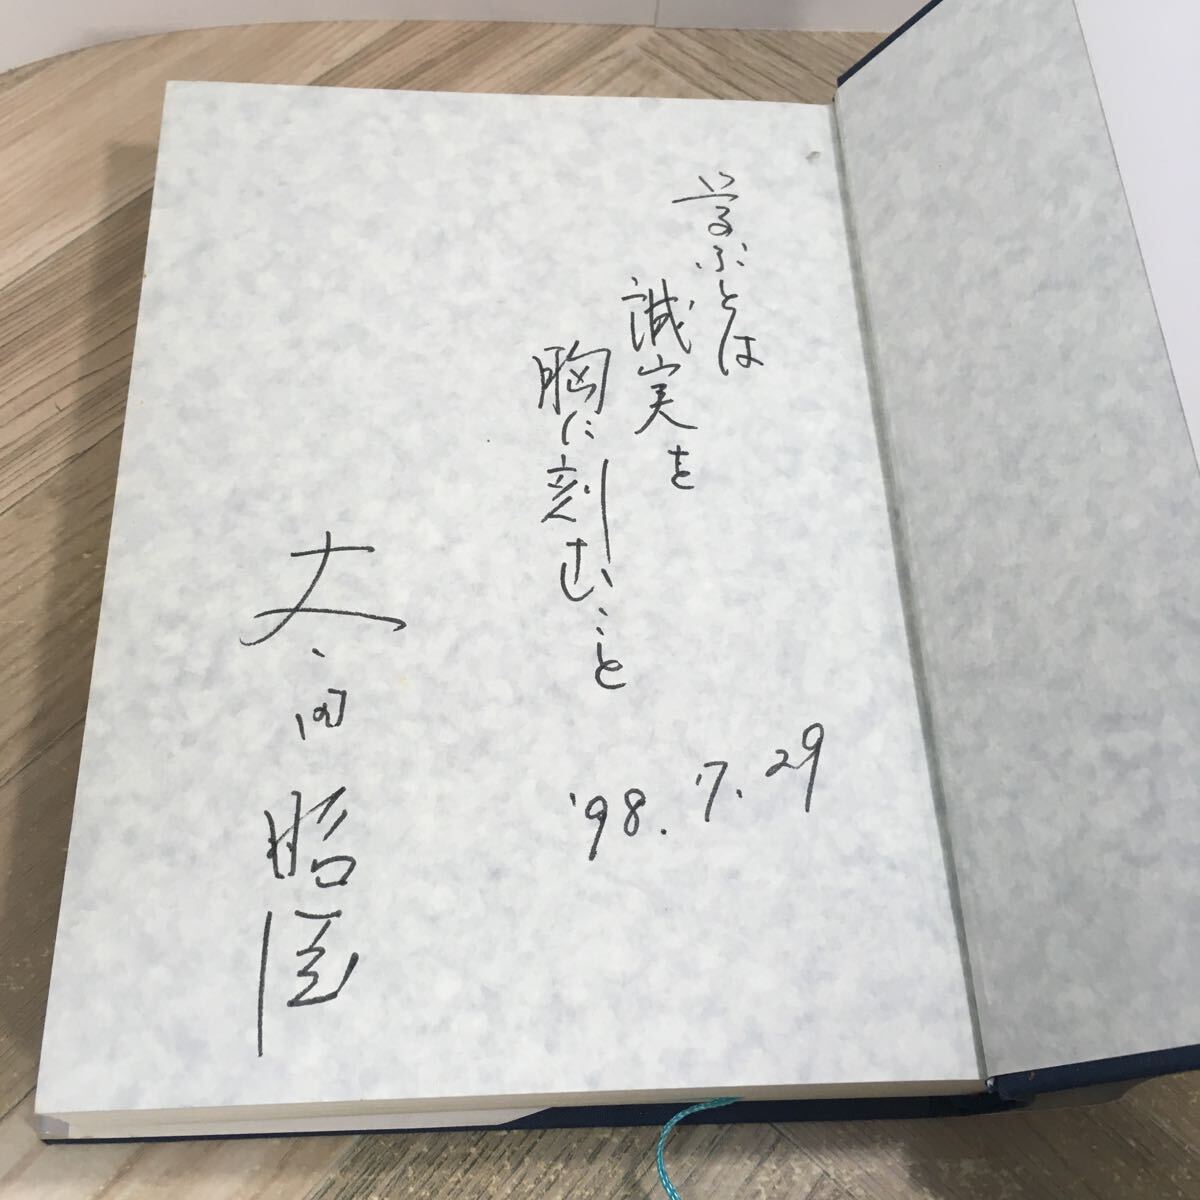 学ぶとは
誠実を
胸に刻むこと
'98.7.29
大田昭臣